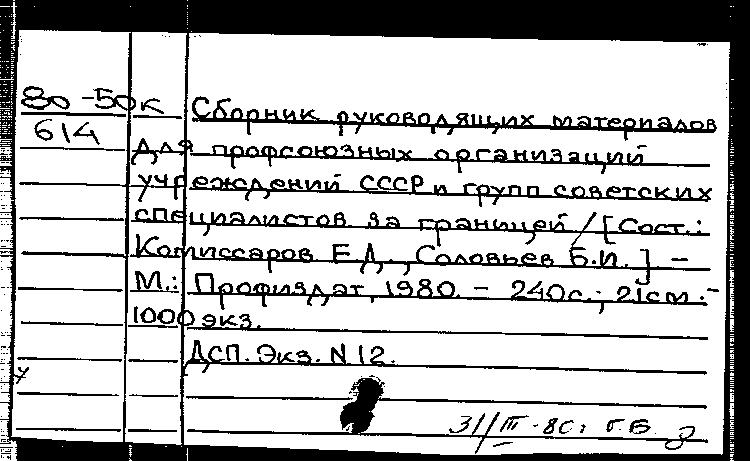 80-50к Сборник руководящих материалов
614
для профсоюзных организаций
учреждений СССР и групп советских
специалистов за границей / [Сост.:
Комиссаров Е.Д., Соловьев Б.И.] -
М.: Профиздат, 1980. - 240с.; 21см. -
1000 экз.
ДСП. Экз. N 12.
31/III-80г. Г.Б.